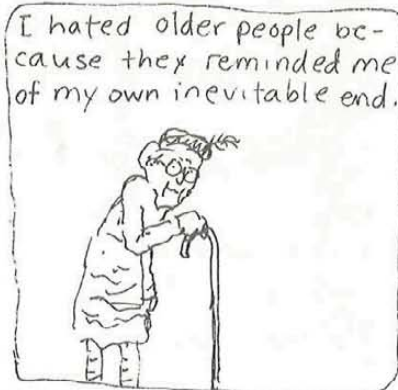 I hated older people be-
cause they reminded me
of my own inevitable end.